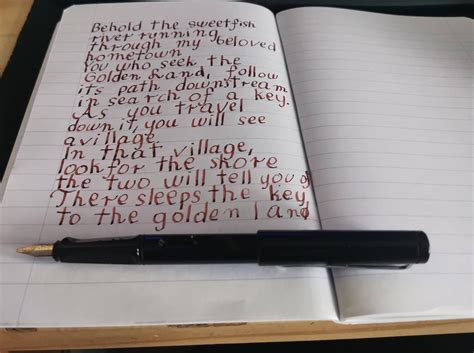 Behold the sweetfish
river running
through my beloved
hometown
You who seek the
Golden Land, follow
its path downstream
in search of a key.
As you travel
down it, you will see
a village.
In that village,
look for the shore
the two will tell you of
There sleeps the key
to the golden land